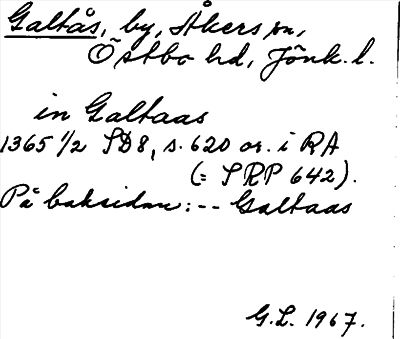 Galtås, by, Åkers sn,
Östbo hd, Jönk. l.
in Galtaas
1365 1/2 SD8, s. 620 or. i RA
(= SRP 642).
På baksidan: -- Galtaas
G.L. 1967.